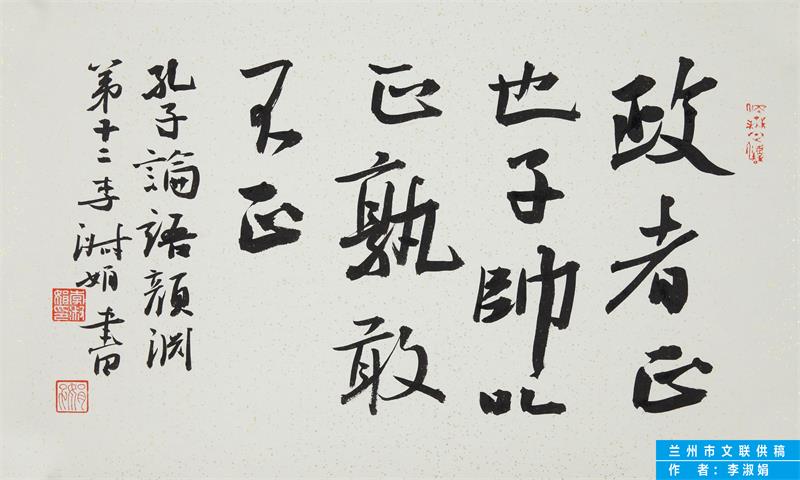 政者正
也子帥以
正孰敢
不正
孔子論語顏淵
第十二李淑娟書
兰州市文联供稿
作 者:李淑娟